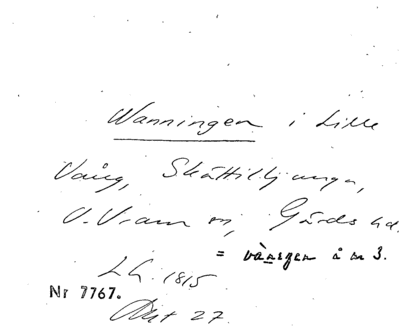 Wanningen i Lille
Vång, Skättiljunga,
V. Vram sn, Gärds hd.
= vànegen å m 3.
LA. 1815
Nr 7767. Akt 27.